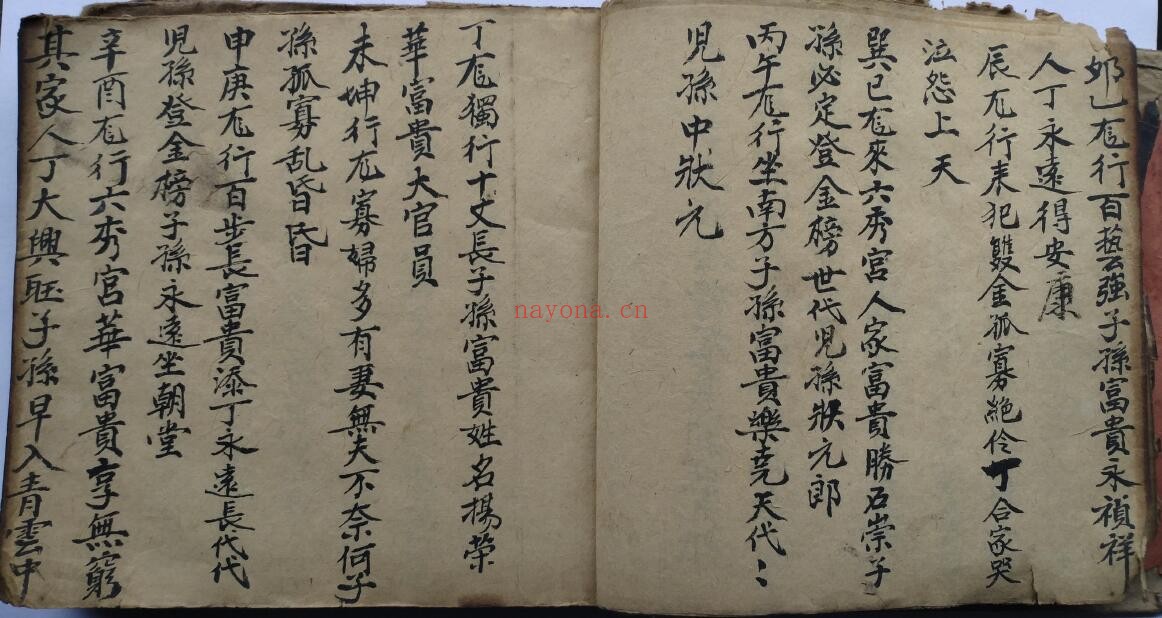 卯乙尨行百藝強子孫富貴永禎祥
人丁永遠得安康
辰尨行来犯雙金孤寡絶伶丁合家哭
泣怨上天
巽巳尨來六秀宮人家富貴勝石崇子
孫必定登金榜世代児孫狀元郎
丙午尨行坐南方子孫富貴樂堯天代〻
児孫中狀元
丁尨獨行十丈長子孫富貴姓名揚荣
華富貴大官員
未坤行尨寡婦多有妻無夫不奈何子
孫孤寡乱昏昏
申庚尨行百步長富貴添丁永遠長代代
児孫登金榜子孫永遠坐朝堂
辛酉尨行六秀宮華富貴享無窮
其家人丁大興旺子孫早入青雲中
nayona.cn